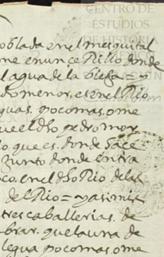 CENTRO DE
ESTUDIOS
DE HISTORIA
poblada en el mesquital
me en un cerrillo donde
el agua de la
do menor, es en el Rio
guas, poco mas o me
ue el dho pedro mor
lo que es, donde hace
Junto donde entra
ca en el dho Rio de las
del Rio = y asi mis
tres caballerias, de
brar, que la una de
legua poco mas o me